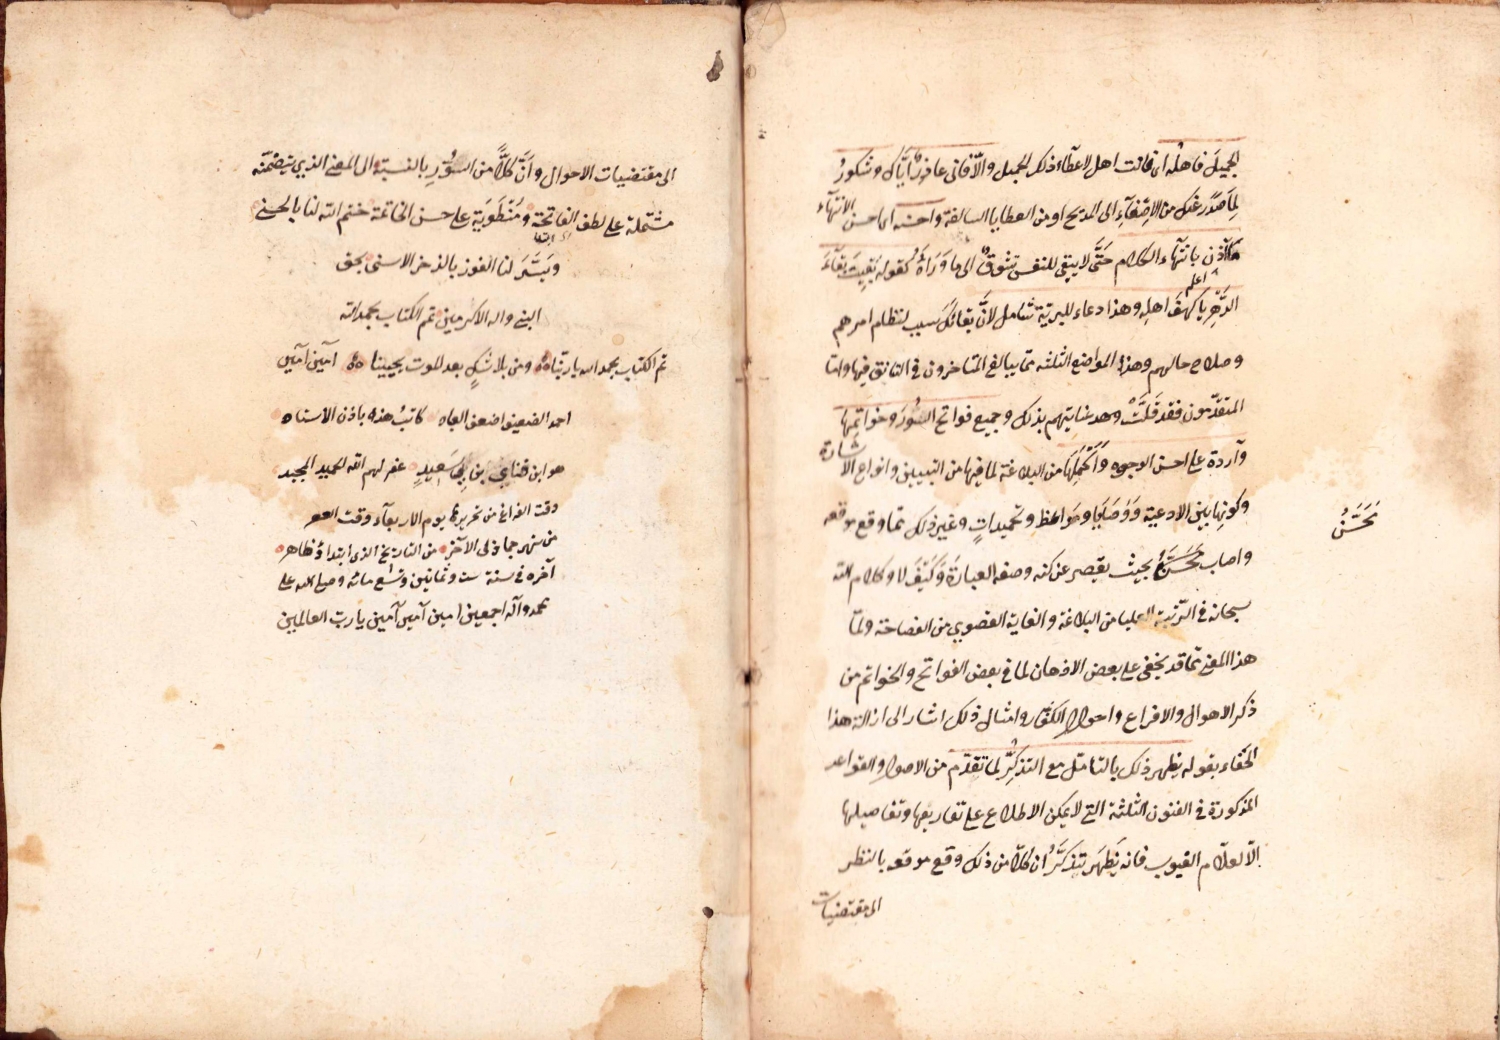 الجميل فاهله اى فانت اهل لاعطاء ذلك الجميل والّا فانى عاذرٌ ايّاك وشكورُ
لِمَا صَدَرَ عنك من الاصغآءِ الى المديح او من العطايا السالفة واحسنه اى احسن الانتهآء
ما آذن بانتهآء الكلام حَتَّى لا يبقى للنفس تشوقٌ الى ما وَرَاءَهُ كقوله بَقِيتَ بَقآءَ
اعلم
الدَّهْرِ يا كهفَ اهلِه وهذا دعاء للبريّة شامل لانَّ بقائك سبب لنظام امرهم
وصلاح حالهم وهذه المواضع الثلثه مما يبالغ المتاخرون فى التانق فيها واما
المتقدّمون فقد قَلَّتْ عنايتهم بذلك وجميع فواتح السُّوَرِ وخواتمها
واردة على احسن الوجوه وَاَكْمَلِهَا من البلاغة لما فيها من التبيين وانواع الاشارة
وكونِها بين الادعية وَوَصَايَا ومَوَاعِظ وتحميداتٍ وغير ذلك مما وقع موقعه
مَحَسَّنُ
واصاب مَحَسَّنُ بحيث يقصر عن كنه وصفه العبارةُ وَكَيْفَ لا وكلام الله
سبحانه فى الرّتبة العليا من البلاغة والغاية القصوى من الفصاحة ولمّا
هذا المعنى مما قد يخفى على بعض الاذهان لما فى بعض الفواتح والخواتم من
ذكر الاهوال والافزاع واحوال الكفّار وامثال ذلك اشار الى ازالة هذا
الخفاء بقوله يظهر ذلك بالتامّل مع التذكّرِ لما تقدّم من الاصول والقواعد
المذكورة فى الفنون الثلثة التى لا يمكن الاطلاع على تفاريعها وتفاصيلها
الّا لعلّام الغيوب فانه يَظهَر بتذكُّرِ ان كلّا من ذلك وقع موقعه بالنظر
الى مقتضيات
الى مقتضيات الاحوال وانَّ كلًّا من السُّوَرِ بالنسبة الى المعنى الذى يتضمّنه
مشتملة على لطف الفاتحة ومُنْطَوِيَة على حسن الخاتمة ختم الله لنا بالحسنى
ويَسَّرَ لنا الفوز بالذخر الاسنى بحق
النبى واله الاكرمين تم الكتاب بحمد الله
تم الكتاب بحمد الله يا ربّنا ومن بلا شكٍ بعد الموت يحيينا امين امين
احمد الضعيف اضعف العباد كاتبُ هذه باذن الاستاد
هو ابن بن سَعِيدٍ غفر لهم الله الحميد المجيد
وقت الفراغ من تحريره يوم الاربعآء وقت العصر
من شهر جماذى الآخر من التاريخ الذى
آخره فى سنة ست وثمانين وتسع مائه وصلى الله على
محمد وآله اجمعين امين آمين آمين يا رب العالمين